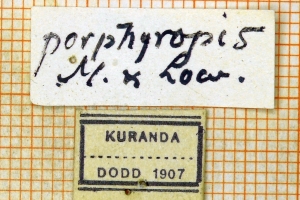 porphyropis
M. & Low.
KURANDA
DODD 1907